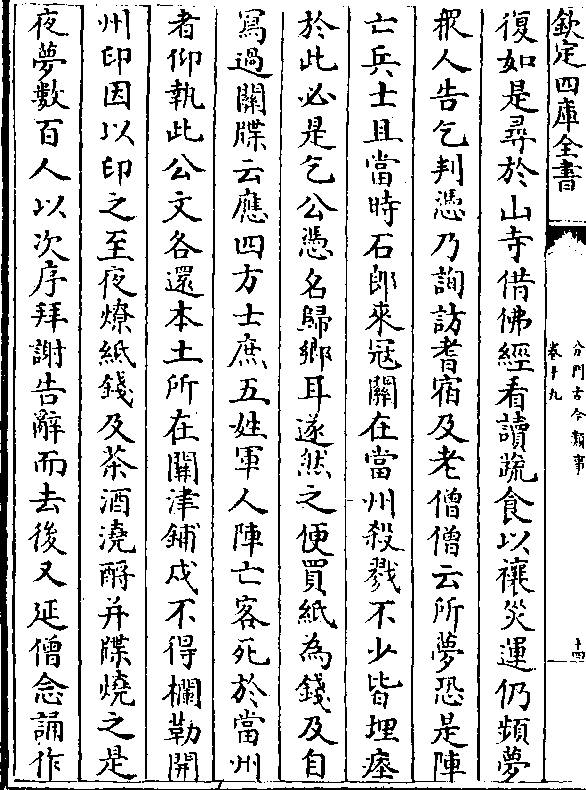 欽定四庫全書
分門古今類事
卷十九
十四
復如是尋於山寺借佛經看讀蔬食以禳災運仍頻夢
衆人告乞判憑乃詢訪耆宿及老僧僧云所夢恐是陣
亡兵士且當時石郎來冦關在當州殺戮不少皆埋瘞
於此必是乞公憑名歸鄉耳遂然之便買紙為錢及自
寫過關牒云應四方士庶五姓軍人陣亡客死於當州
者仰執此公文各還本土所在關津鋪戍不得欄勒開
州印因以印之至夜燎紙錢及茶酒澆酹并牒燒之是
夜夢數百人以次序拜謝告辭而去後又延僧念誦作